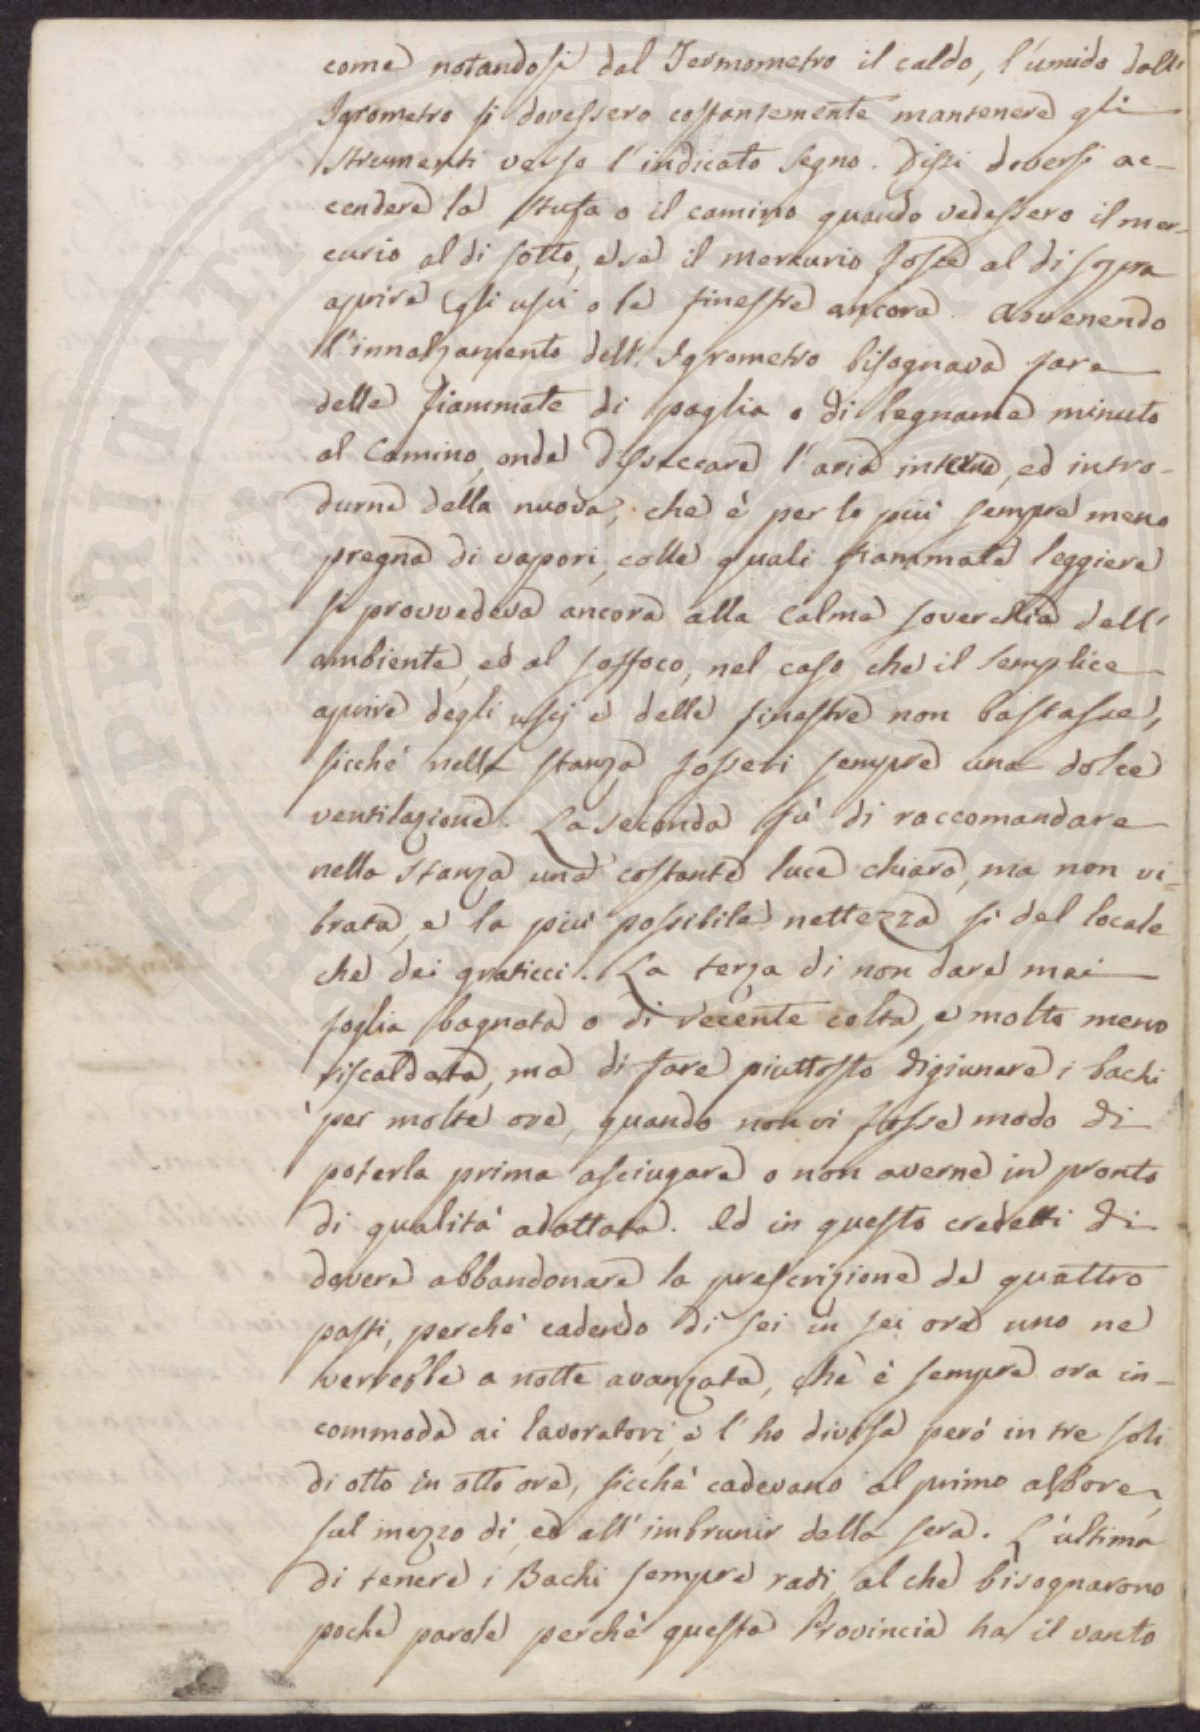 come notandosi dal Termometro il caldo, l'umido dall'
Igrometro si dovessero costantemente mantenere gli
strumenti verso l'indicato segno. Dissi doversi ac-
cendere la stufa o il camino quando vedessero il mer-
curio al di sotto, e se il mercurio fosse al di sopra
aprire gli usci o le finestre ancora. Avvenendo
l'innalzamento dell'Igrometro bisognava fare
delle fiammate di paglia o di legname minuto
al Camino, onde disseccare l'aria interna, ed intro-
durne della nuova, che è per lo più sempre meno
pregna di vapori, colle quali fiammate leggiere
si provvedeva ancora alla calma soverchia dell'
ambiente, ed al soffoco, nel caso che il semplice
aprire degli uscj e delle finestre non bastasse,
sicché nella stanza fossevi sempre una dolce
ventilazione. La seconda fù di raccomandare
nella stanza una costante luce chiara, ma non vi-
brata, e la più possibile nettezza sì del locale
che dei graticci. La terza di non dare mai
foglia bagnata o di recente colta, e molto meno
riscaldata, ma di fare piuttosto digiunare i bachi
per molte ore, quando non vi fosse modo di
poterla prima asciugare o non averne in pronto
di qualità adattata. Ed in questo credetti di
dovere abbandonare la prescrizione de quattro
pasti, perché cadendo di sei in sei ore uno ne
verrebbe a notte avanzata, che è sempre ora in-
commoda ai lavoratori, e l'ho divisa però in tre soli
di otto in otto ore, sicché cadevano al primo albore,
sul mezzo dì, ed all'imbrunir della sera. L'ultima
di tenere i Bachi sempre radi, al che bisognarono
poche parole perché questa Provincia ha il vanto
PROSPERITATI